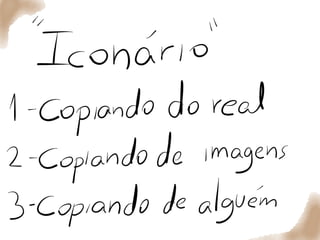 "Iconário"
1-Copiando do real
2-Copiando de imagens
3-Copiando de alguém